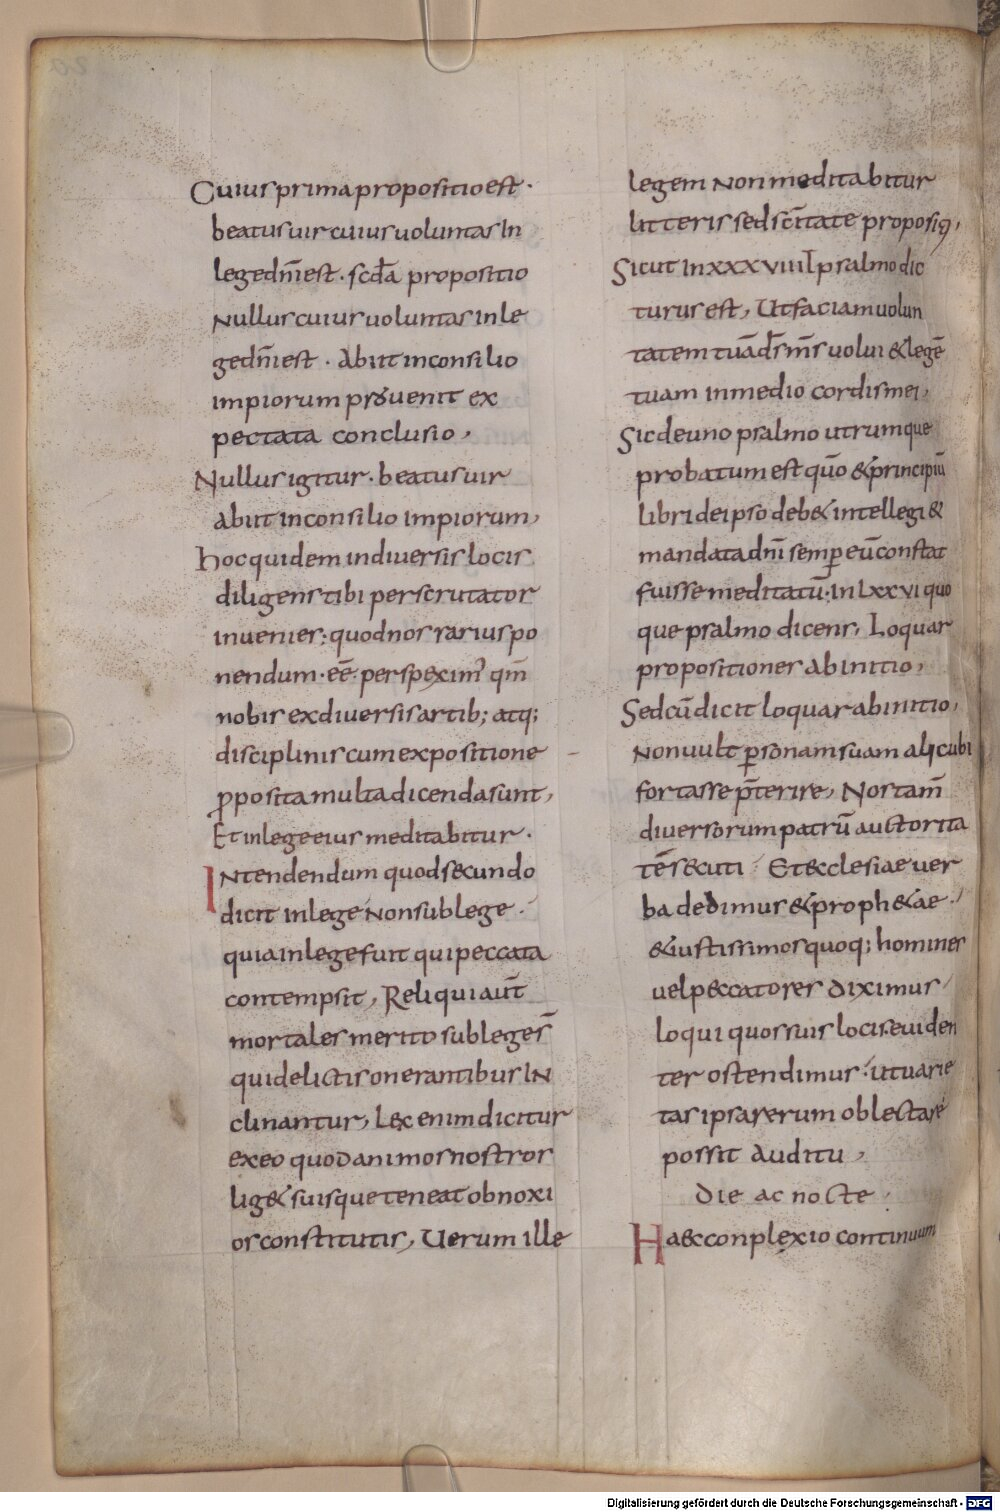 Cuius prima propositio est·
beatus uir cuius uoluntas In
lege dn̄i est· scd̄a propositio
Nullus cuius uoluntas in le
ge dn̄i est· Abiit in consilio
impiorum prouenit ex
pectata conclusio,
Nullus igitur· beatus uir
abiit in consilio impiorum,
hoc quidem in diuersis locis
diligens tibi perscrutator
inuenies; quod nos rarius po
nendum· eē perspeximꝰ qm̄
nobis ex diuersis artib; atq;
disciplinis cum expositione
ꝓposita multa dicenda sunt,
Et in lege eius meditabitur·
INtendendum quod secundo
dicit in lege Non sub lege·
quia in lege fuit qui peccata
contempsit, Reliqui aut̄
mortales merito sub lege s̄
qui delictis onerantibus IN
clinantur, Lex enim dicitur
ex eo quod animos nostros
lig& suisque teneat obnoxi
os constitutis, Uerum ille
legem Non meditabitur
litteris sed sc̄itate proposiꝗ,
Sicut In xxxviiiI psalmo dic
turus est, Ut faciam uolun
tatem tuā ds̄ ms̄ uolui & legē
tuam in medio cordis mei,
Sic de uno psalmo utrumque
probatum est quō & principiū
libri de ipso deb& intellegi &
mandata dn̄i semꝑ eū constat
fuisse meditatū· in Lxxvi quo
que psalmo dicens, Loquar
propositiones ab initio,
Sed cū dicit loquar ab initio,
Non uult ꝑsonam suam alicubi
fortasse p̄terire, Nos tam̄
diuersorum patrū auctorita
tē secuti Et ecclesiae uer
ba dedimus & proph&ae·
& iustissimos quoq; homines
uel peccatores diximus
loqui quos suis locis euiden
ter ostendimus· ut uarie
tas ipsa rerum oblectare
possit Auditu,
die ac nocte
Haec conplexio continuum
Digitalisierung gefördert durch die Deutsche Forschungsgemeinschaft - DFG